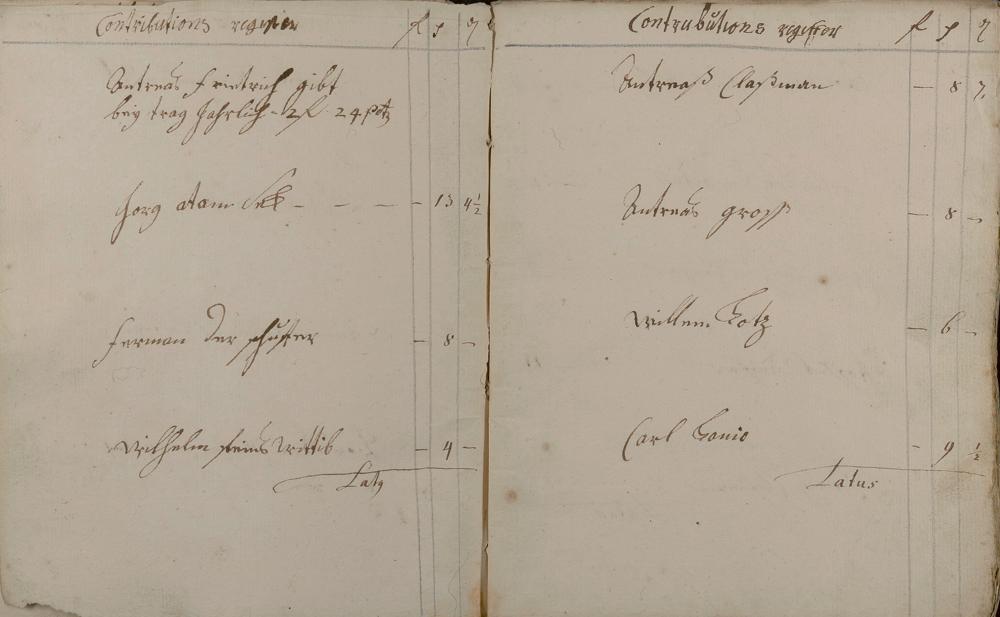 Contributions register f s ₰
Antreas Frietrich gibt
beÿtrag Jahrlich - 2 f 24
Jorg Atam - - - - 13 4½
Herman der schuster - 8 -
Wilhelm steins Wittib - 4 -
Latg
Contributions register f s ₰
Antreaß Claßman - 8 7.
Antreas groß - 8 -
Willem Kotz - 6 -
Carl - 9 ½
Latus